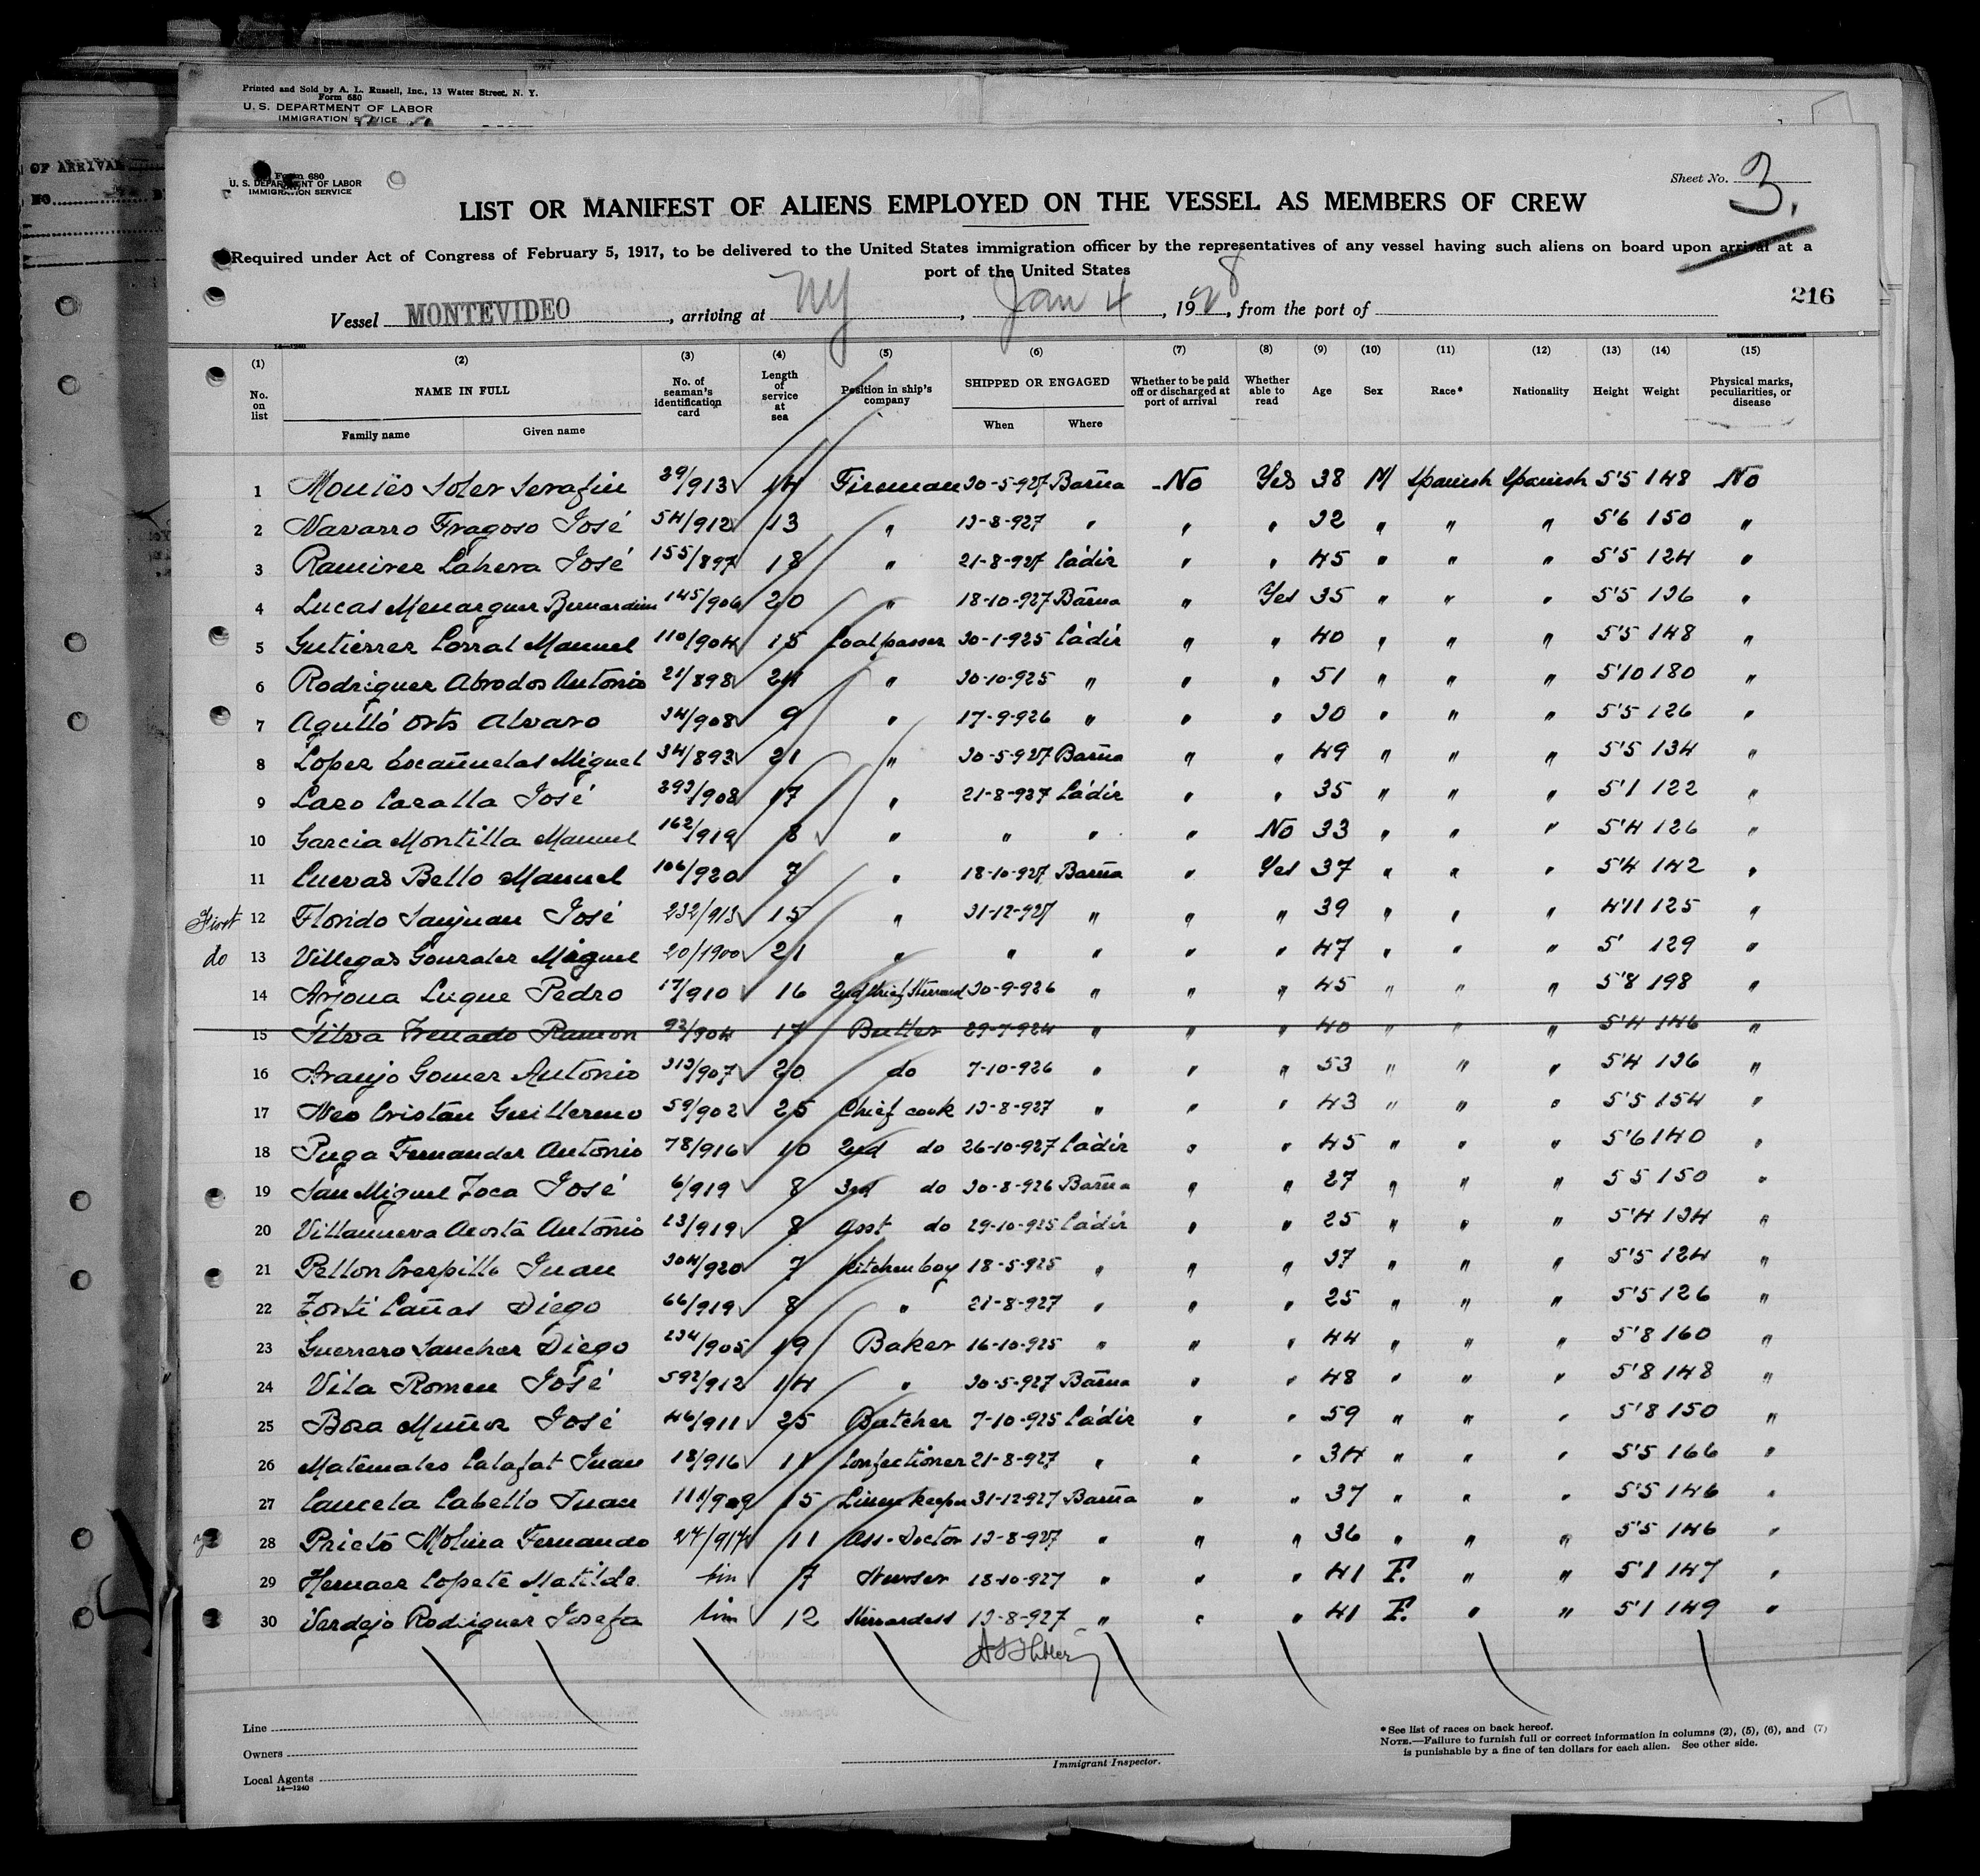 Printed and Sold by A. L. Russell, Inc., 13 Water Street, N. Y.
Form 680
U. S. DEPARTMENT OF LABOR
IMMIGRATION SERVICE
OF ARRIVAL
NO.
Form 680
U. S. DEPARTMENT OF LABOR
IMMIGRATION SERVICE
Sheet No. 3.
LIST OR MANIFEST OF ALIENS EMPLOYED ON THE VESSEL AS MEMBERS OF CREW
Required under Act of Congress of February 5, 1917, to be delivered to the United States immigration officer by the representatives of any vessel having such aliens on board upon arrival at a
port of the United States
216
Vessel MONTEVIDEO, arriving at NY, Jan 4, 1928, from the port of
14—1240
(1) (2) (3) (4) (5) (6) (7) (8) (9) (10) (11) (12) (13) (14) (15)
No. on list NAME IN FULL Family name Given name No. of seaman's identification card Length of service at sea Position in ship's company SHIPPED OR ENGAGED When Where Whether to be paid off or discharged at port of arrival Whether able to read Age Sex Race* Nationality Height Weight Physical marks, peculiarities, or disease
1 Moniës Soler Serafin 39/913 14 Fireman 30-5-927 Barña No Yes 38 M Spanish Spanish 5'5 148 No
2 Navarro Fragoso José 54/912 13 " 13-8-927 " " " 32 " " " 5'6 150 "
3 Ramirez Lahera José 155/897 18 " 21-8-927 Cádiz " " 45 " " " 5'5 124 "
4 Lucas Menarguez Bernardino 145/906 20 " 18-10-927 Barña " Yes 35 " " " 5'5 136 "
5 Gutierrez Corral Manuel 110/904 15 Coalpasser 30-1-925 Cádiz " " 40 " " " 5'5 148 "
6 Rodriguez Abrodos Antonio 21/898 24 " 30-10-925 " " " 51 " " " 5'10 180 "
7 Agulló Orts Alvaro 34/908 9 " 17-9-926 " " " 30 " " " 5'5 126 "
8 Lopez Escañuelas Miguel 34/893 21 " 30-5-927 Barña " " 49 " " " 5'5 134 "
9 Lazo Caralla José 293/908 17 " 21-8-927 Cádiz " " 35 " " " 5'1 122 "
10 Garcia Montilla Manuel 162/919 8 " " " " No 33 " " " 5'4 126 "
11 Cuevas Bello Manuel 106/920 7 " 18-10-927 Barña " Yes 37 " " " 5'4 142 "
First 12 Florido Sanjuan José 232/913 15 " 31-12-927 " " " 39 " " " 4'11 125 "
do 13 Villegas Gonzalez Miguel 20/1900 21 " " " " " 47 " " " 5' 129 "
14 Arjona Luque Pedro 17/910 16 2nd Chief Steward 30-9-926 " " " 45 " " " 5'8 198 "
15 Silva Trenado Ramon 92/904 17 Butler 29-7-924 " " " 40 " " " 5'4 146 "
16 Araujo Gomez Antonio 313/907 20 do 7-10-926 " " " 53 " " " 5'4 136 "
17 Neo Cristan Guillermo 59/902 25 Chief cook 13-8-927 " " " 43 " " " 5'5 154 "
18 Puga Fernandez Antonio 78/916 10 2nd do 26-10-927 Cádiz " " 45 " " " 5'6 140 "
19 San Miguel Toca José 6/919 8 3rd do 30-8-926 Barña " " 27 " " " 5 5 150 "
20 Villanueva Acosta Antonio 23/919 8 Asst do 29-10-925 Cádiz " " 25 " " " 5'4 134 "
21 Pellon Crespillo Juan 304/920 7 Kitchenboy 18-5-925 " " " 37 " " " 5'5 124 "
22 Torti Cañas Diego 66/919 8 " 21-8-927 " " " 25 " " " 5'5 126 "
23 Guerrero Sanchez Diego 234/905 19 Baker 16-10-925 " " " 44 " " " 5'8 160 "
24 Vila Romeu José 592/912 14 " 30-5-927 Barña " " 48 " " " 5'8 148 "
25 Boza Muñoz José 46/911 25 Butcher 7-10-925 Cádiz " " 59 " " " 5'8 150 "
26 Matemales Calafat Juan 18/916 11 Confectioner 21-8-927 " " " 34 " " " 5'5 166 "
27 Cancela Cabello Juan 111/909 15 Linen keeper 31-12-927 Barña " " 37 " " " 5'5 146 "
28 Prieto Molina Fernando 27/917 11 Ass-Doctor 13-8-927 " " " 36 " " " 5'5 146 "
29 Hernaez Copete Matilde 7 Nurser 18-10-927 " " " 41 F. " " 5'1 147 "
30 Verdejo Rodriguez Josefa 12 Stewardess 13-8-927 " " " 41 F. " " 5'1 149 "
Line
Owners
Local Agents
14—1240
Immigrant Inspector.
*See list of races on back hereof.
NOTE.—Failure to furnish full or correct information in columns (2), (5), (6), and (7)
is punishable by a fine of ten dollars for each alien. See other side.